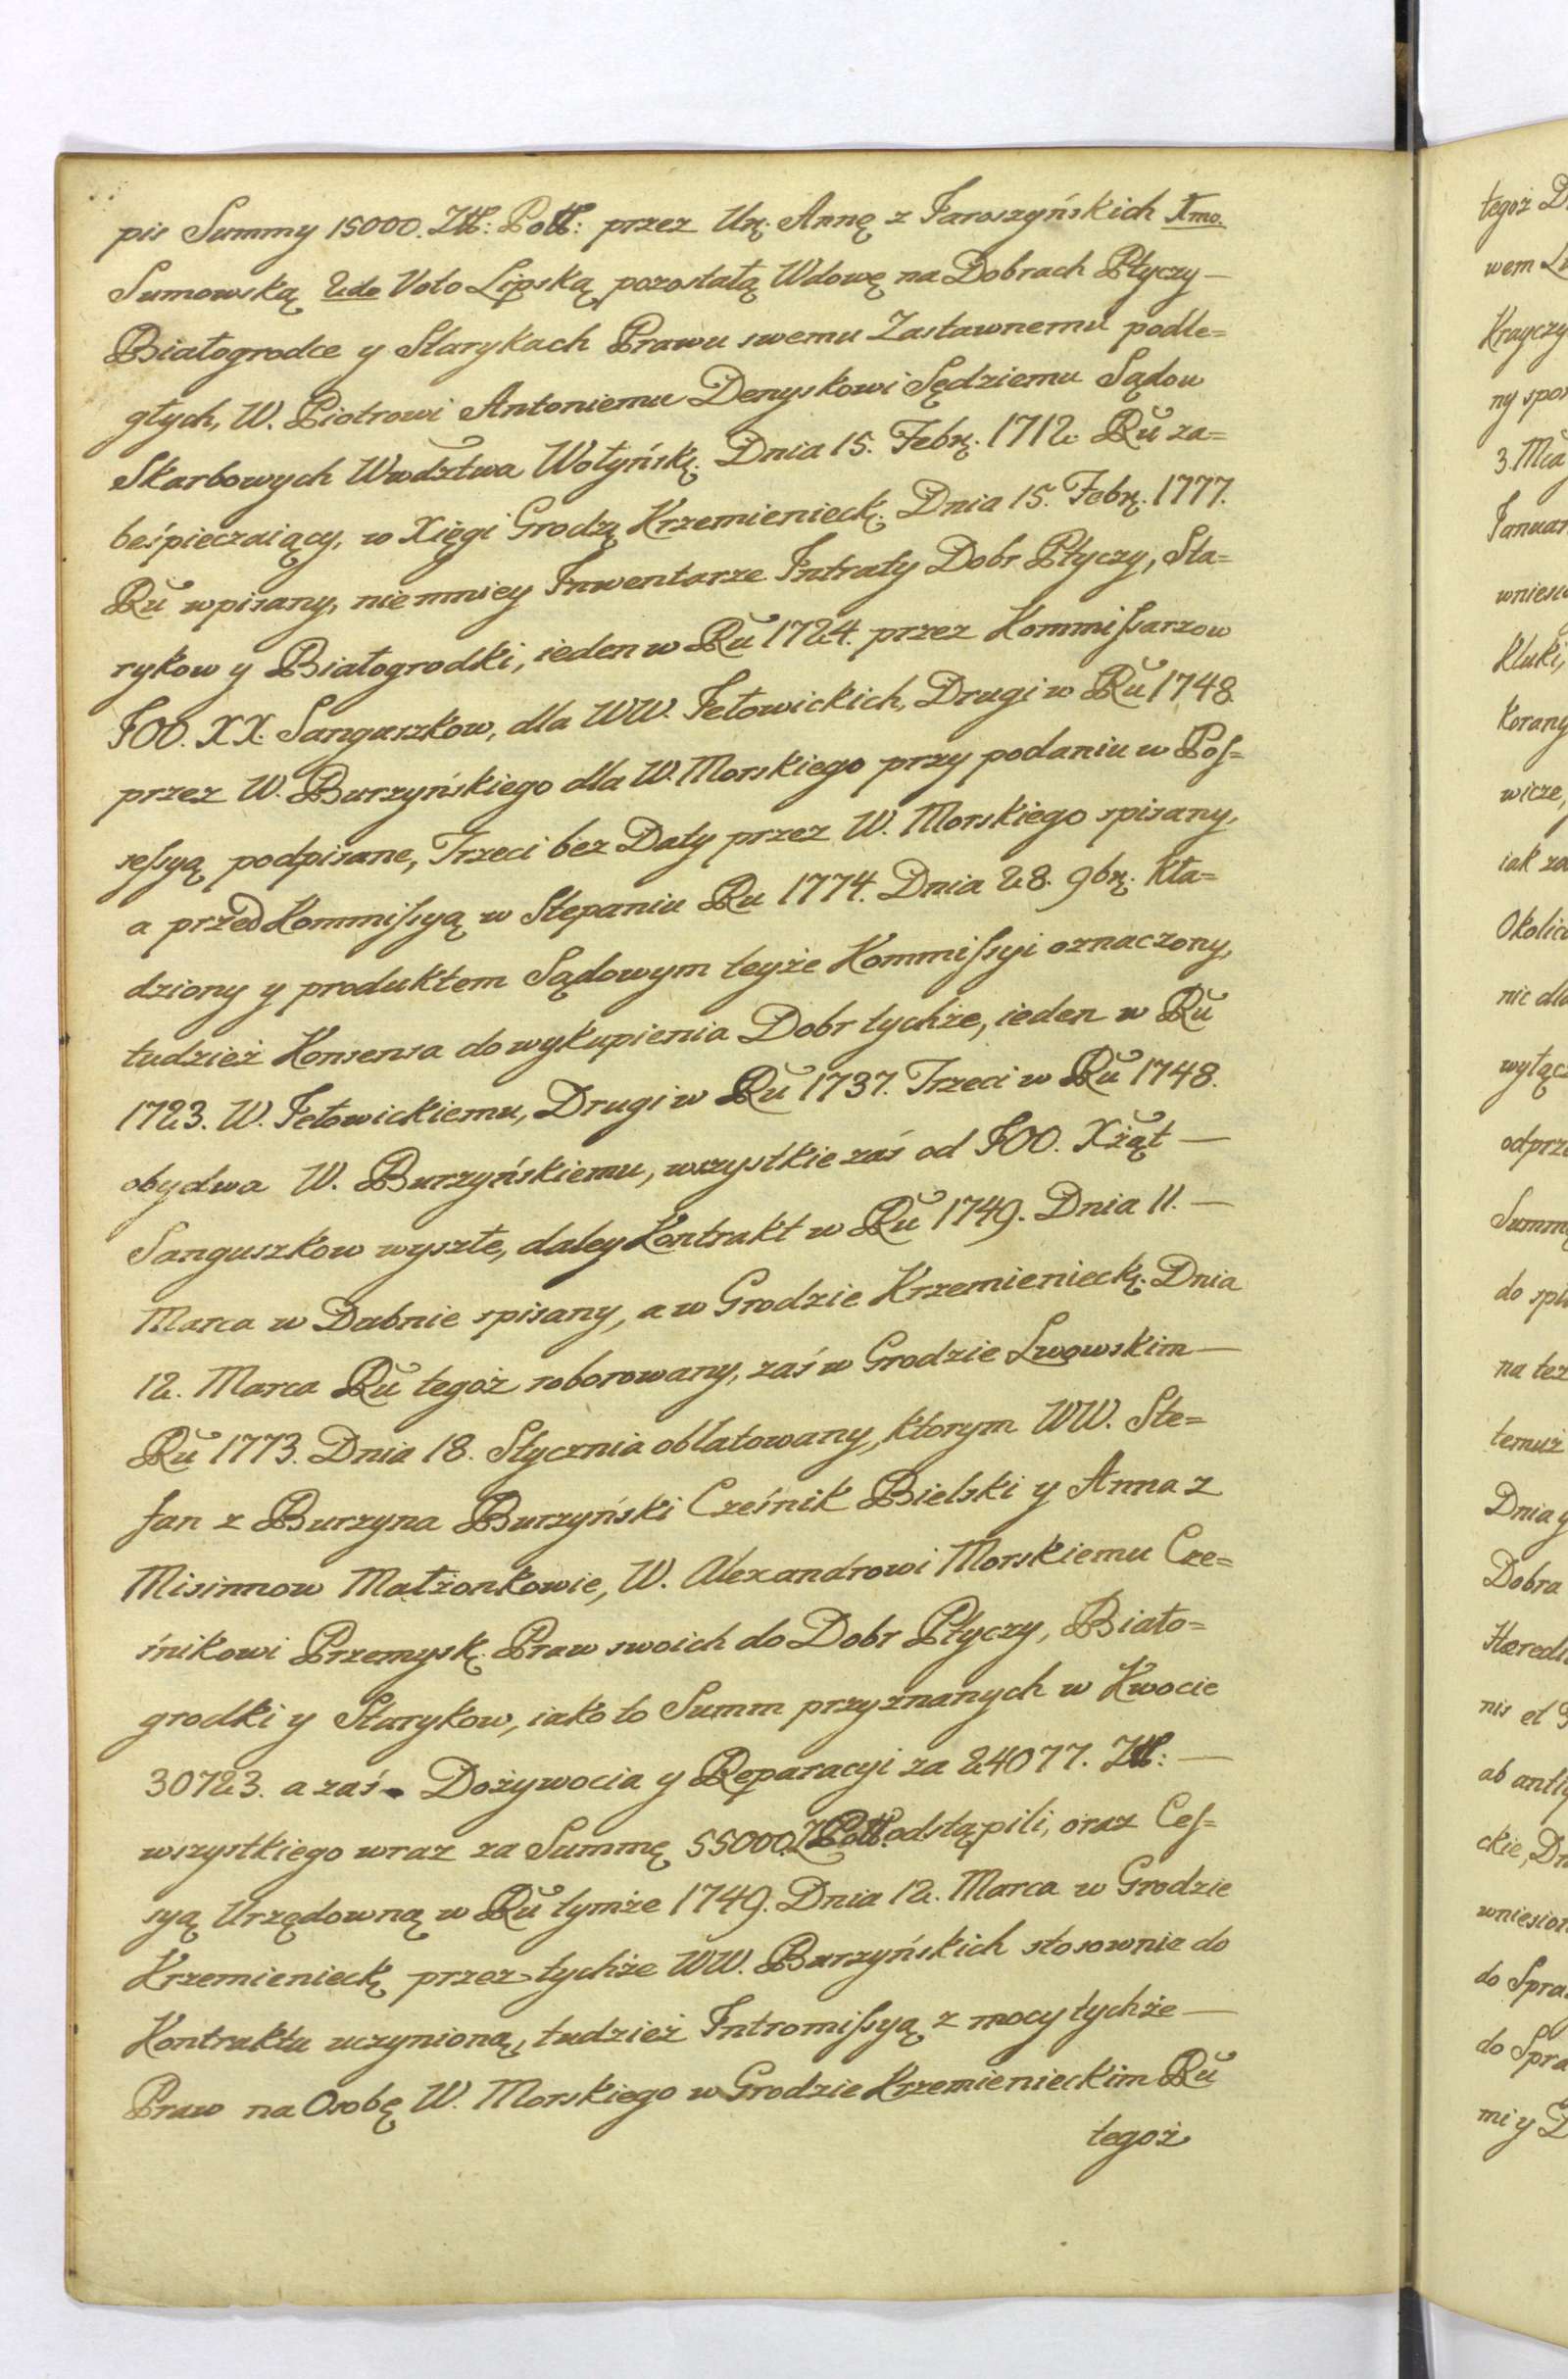 pis Summy 15000. Złł: Poll: przez Ur. Annę z Jaroszyńskich 1mo.
Sumowską 2do Voto Lipską pozostałą Wdowę na Dobrach Płyczy —
Białogrodce y Starykach Prawu swemu Zastawnemu podle=
głych, W. Piotrowi Antoniemu Denyskowi Sędziemu Sądow
Skarbowych Wwdztwa Wołyńsk. Dnia 15. Febr. 1712. Ru za=
beśpieczaiący, w Xięgi Grodz. Krzemienieck. Dnia 15. Febr. 1777.
Ru wpisany, niemniey Inwentarze Intraty Dobr Płyczy, Sta=
rykow y Białogrodki, ieden w Ru 1724. przez Kommiſsarzow
JOO. XX. Sanguszkow, dla WW. Jełowickich, Drugi w Ru 1748.
przez W. Burzyńskiego dla W. Morskiego przy podaniu w Poſ=
seſsyą podpisane, Trzeci bez Daty przez W. Morskiego spisany,
a przed Kommiſsyą w Stepaniu Ru 1774. Dnia 28. 9br. kła=
dziony y produktem Sądowym teyże Kommiſsyi oznaczony,
tudzież Konsensa do wykupienia Dobr tychże, ieden w Ru
1723. W. Jełowickiemu, Drugi w Ru 1737. Trzeci w Ru 1748.
obydwa W. Burzyńskiemu, wszystkie zaś od JOO. Xżąt —
Sanguszkow wyszłe, daley Kontrakt w Ru 1749. Dnia 11. —
Marca w Dubnie spisany, a w Grodzie Krzemienieck. Dnia
12. Marca Ru tegoż roborowany, zaś w Grodzie Lwowskim —
Ru 1773. Dnia 18. Stycznia oblatowany, ktorym WW. Ste=
fan z Burzyna Burzyński Cześnik Bielski y Anna z
Misinnow Małżonkowie, W. Alexandrowi Morskiemu Cze=
śnikowi Przemysk. Praw swoich do Dobr Płyczy, Biało=
grodki y Starykow, iako to Summ przyznanych w Kwocie
30723. a zaś Dożywocia y Reparacyi za 24077. Złł: —
wszystkiego wraz za Summę 55000. Z Poll. odstąpili, oraz Ceſ=
syą Urzędowną w Ru tymże 1749. Dnia 12. Marca w Grodzie
Krzemienieck. przez tychże WW. Burzyńskich stosownie do
Kontraktu uczynioną, tudzież Intromiſsyą z mocy tychże —
Praw na Osobę W. Morskiego w Grodzie Krzemienieckim Ru
tegoż